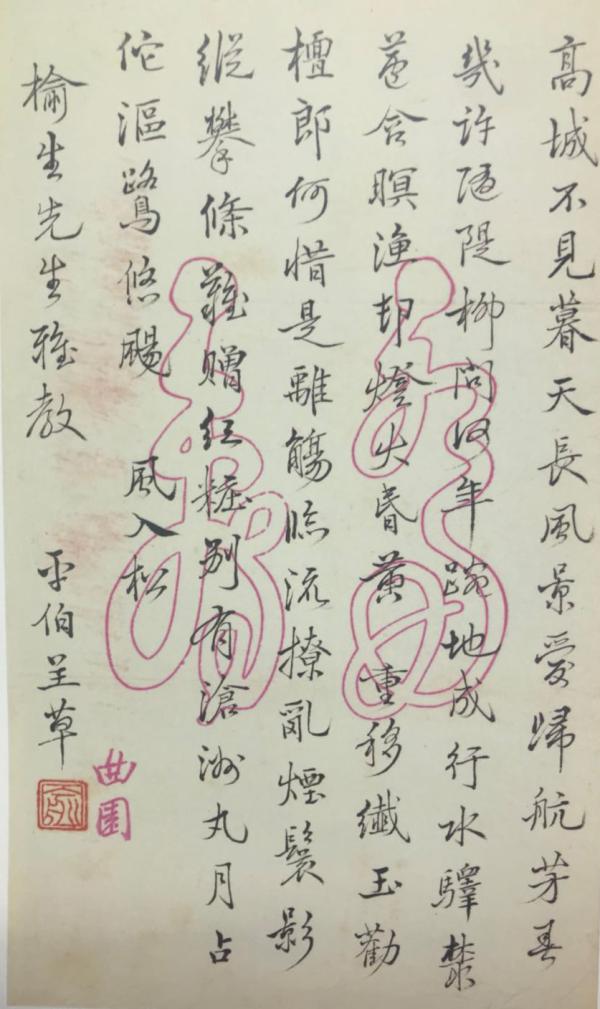 高城不見暮天長風景愛歸航芳春
幾許隋隄柳問何年踠地成行水驛叢
蘆含暝漁邨燈火昏黃 重移纖玉勸
檀郎何惜是離觴臨流撩亂煙鬟影
縱攀條難贈紅粧別有滄洲丸月占
佗漚鷺悠颺 風入松
榆生先生雅教 平伯呈草
俞
曲園